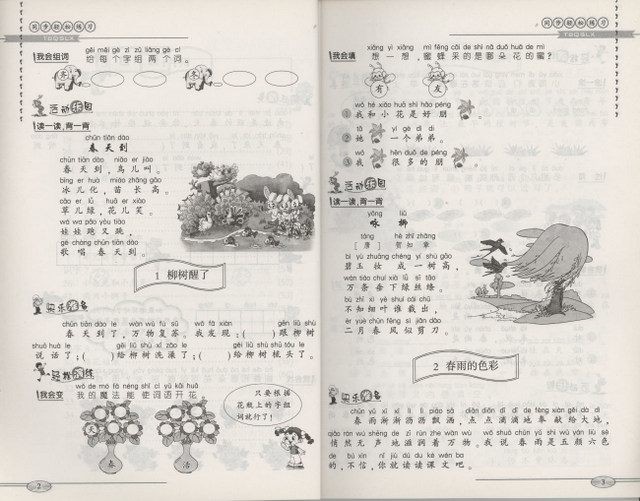 同步轻松练习
TBQSLX
我会组词
gěi měi gè zì zǔ liǎng gè cí
给每个字组两个词。
冬
活动乐园
读一读,背一背
chūn tiān dào
春天到
chūn tiān dào niǎo ér jiào
春天到,鸟儿叫。
bīng er huà miáo zhǎng gāo
冰儿化,苗长高。
cǎo ér lǜ huā ér xiào
草儿绿,花儿笑。
wá wa pǎo yòu tiào
娃娃跑又跳,
gē chàng chūn tiān dào
歌唱春天到。
1 柳树醒了
chūn tiān dào le wàn wù fù sū wǒ fā xiàn gēn liǔ shù
春天到了,万物复苏。我发现:( )跟柳树
shuō huà le gěi liǔ shù xǐ zǎo le gěi liǔ shù shū tóu le
说话了;( )给柳树洗澡了;( )给柳树梳头了。
我会变
wǒ de mó fǎ néng shǐ cí yǔ kāi huā
我的魔法能使词语开花。
只要根据
花瓶上的字组
词就行了!
天
春
活
2
同步轻松练习
TBQSLX
我会填
xiǎng yì xiǎng mì fēng cǎi de shì nǎ duǒ huā de mì
想一想,蜜蜂采的是哪朵花的蜜?
有
友
wǒ hé xiǎo huā shì hǎo péng
①我和小花是好朋 。
tā yí gè dì di
②她 一个弟弟。
wǒ hěn duō de péng
③我 很多的朋 。
活动乐园
读一读,背一背
yǒng liǔ
咏柳
táng hè zhī zhāng
[唐] 贺知章
bì yù zhuāng chéng yí shù gāo
碧玉妆成一树高,
wàn tiáo chuí xià lǜ sī tāo
万条垂下绿丝绦。
bù zhī xì yè shuí cái chū
不知细叶谁裁出,
èr yuè chūn fēng sì jiǎn dāo
二月春风似剪刀。
2 春雨的色彩
chūn yǔ xī xī lì lì piāo sǎ diǎn diǎn dī dī de fèng xiàn gěi dà dì
春雨淅淅沥沥飘洒,点点滴滴地奉献给大地,
qiǎo rán wú shēng de zī rùn zhe wàn wù wǒ shuō chūn yǔ shì wǔ yán liù sè
悄然无声地滋润着万物。我说春雨是五颜六色
de bú xìn nǐ jiù dú du kè wén ba
的,不信,你就读读课文吧。
3